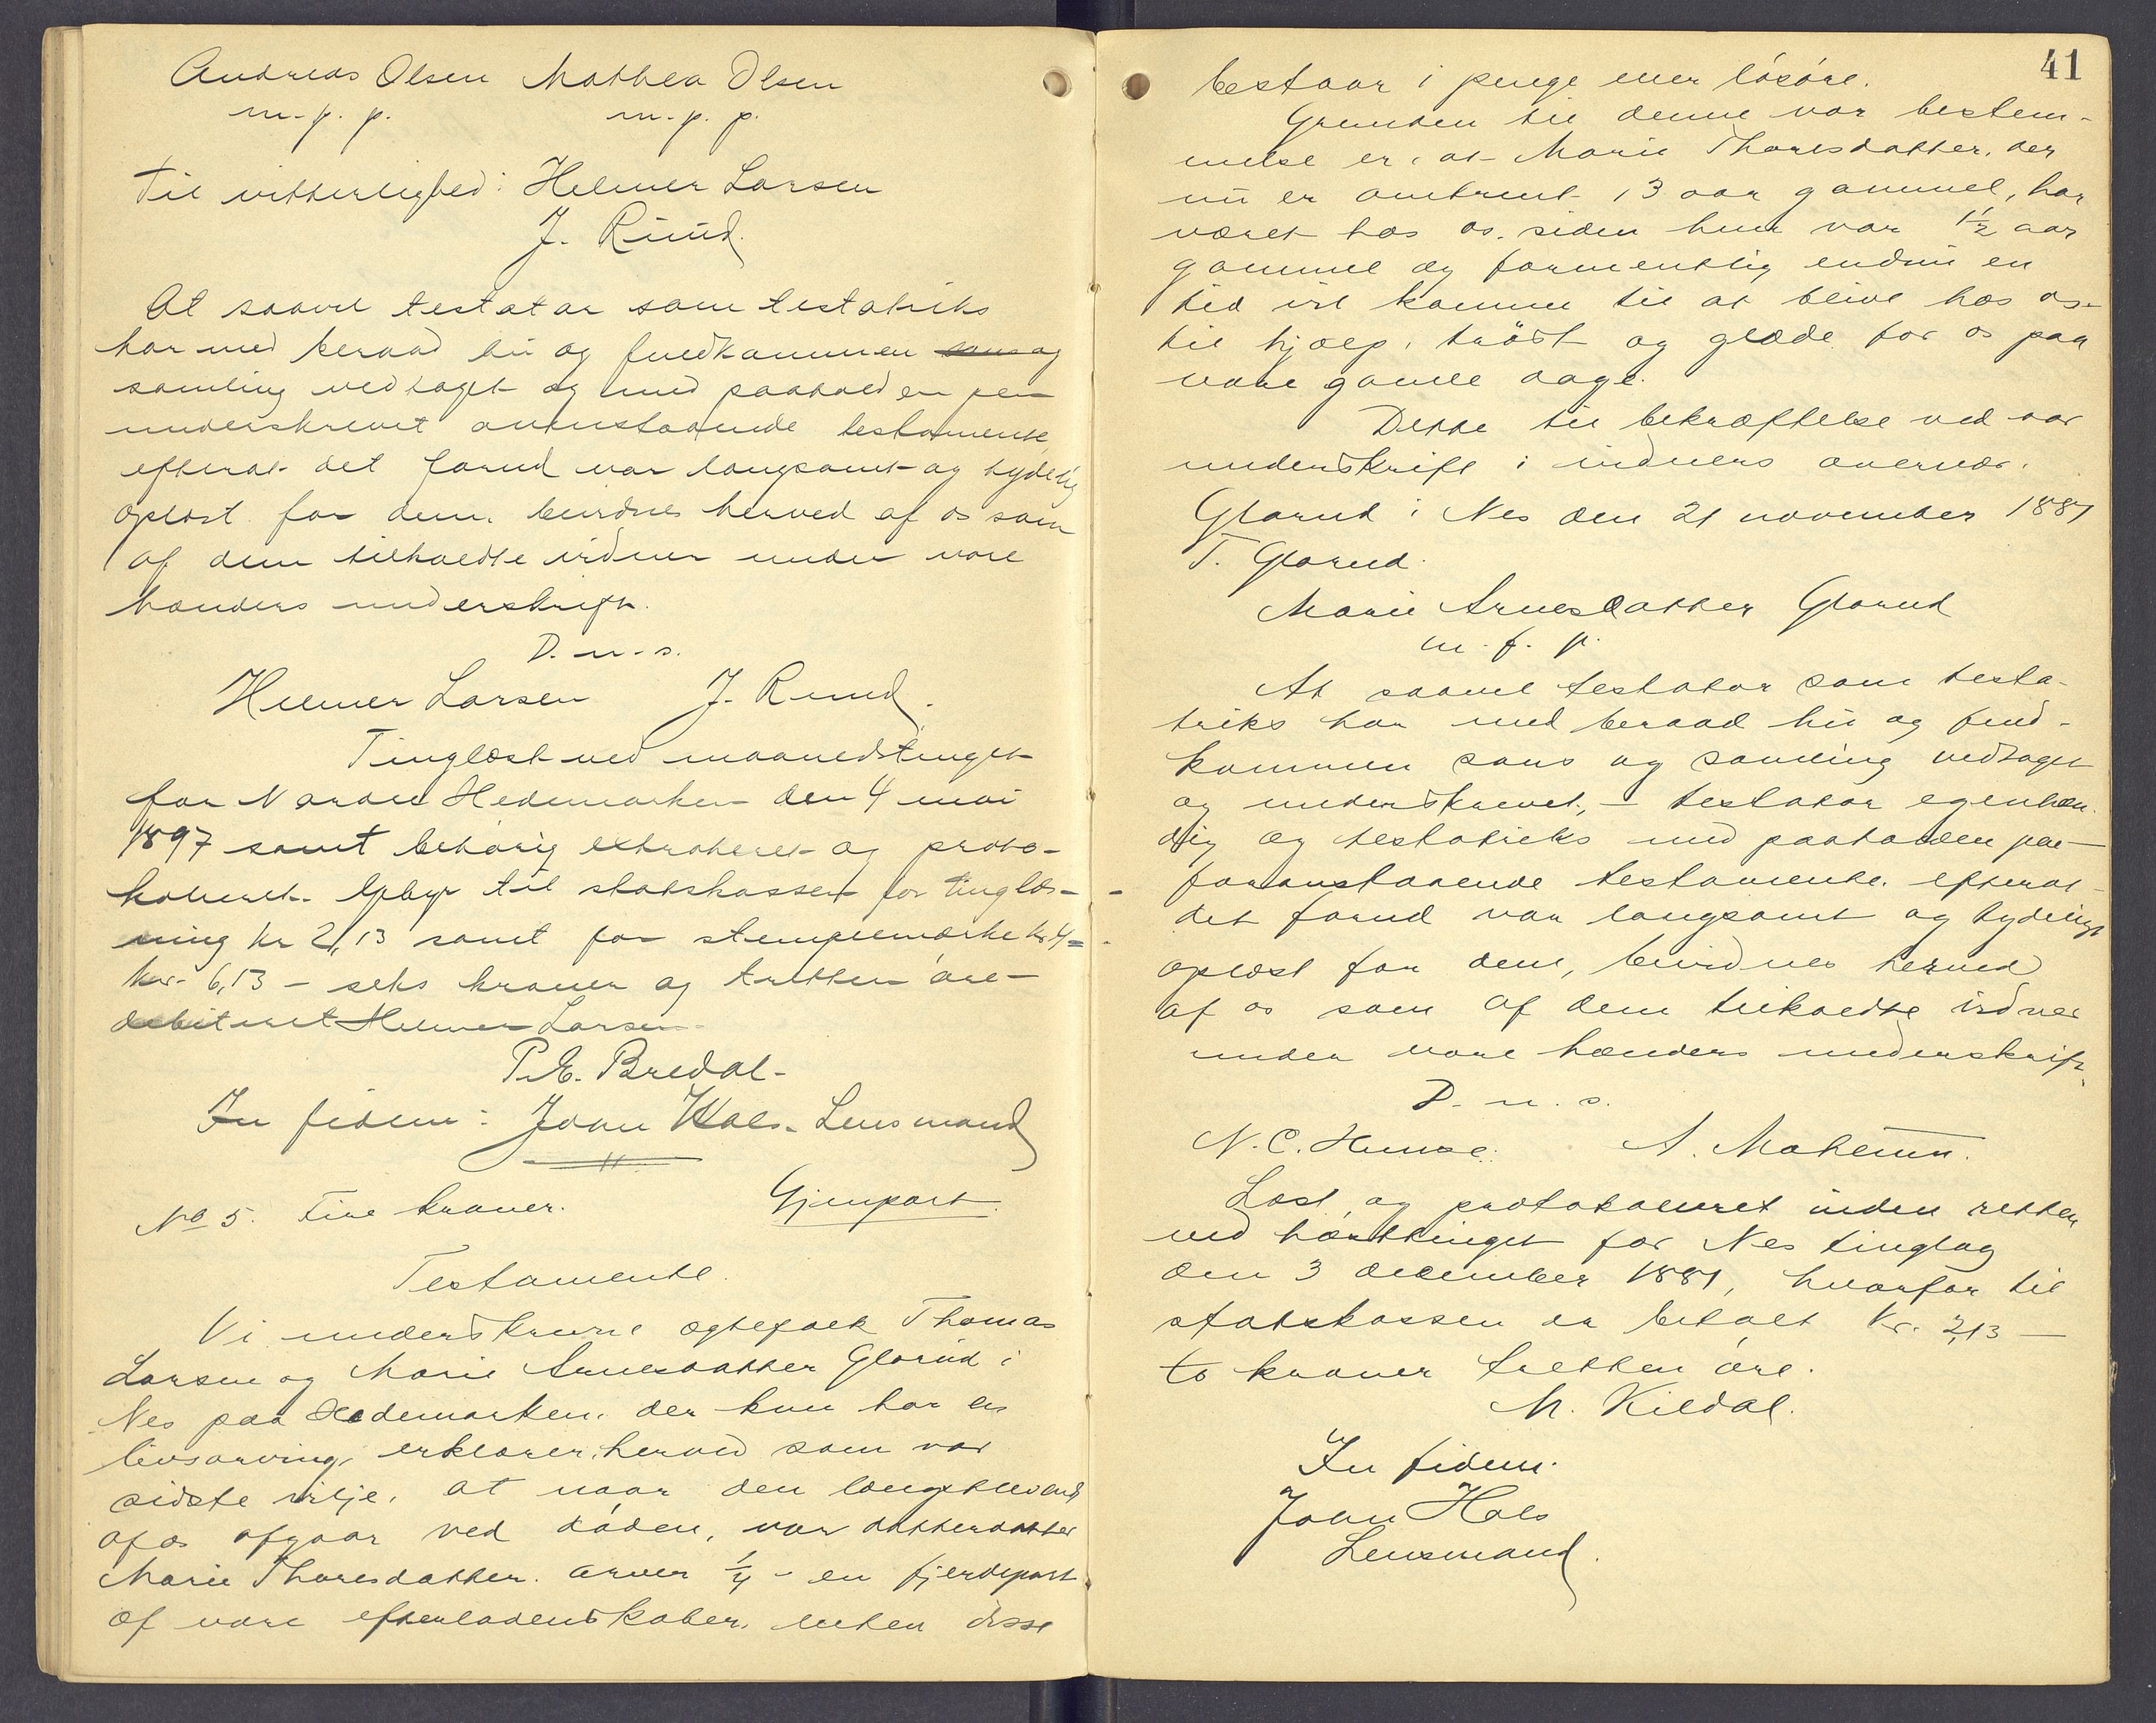 Andreas Olsen Mathea Olsen
m. p. p. m. p. p.
Til vitterlighed: Helmer Larsen
J. Ruud.
At saavel testator som testatriks
har med beraad hu og fuldkommen ~~sans og~~
samling vedtaget og med paaholden pen
underskrevet ovenstaaende testamente,
efterat det forud var langsomt og tydelig
oplæst for dem, bevidnes herved af os som
af dem tilkaldte vidner under vore
hænders underskrift.
D. u. s.
Helmer Larsen J. Ruud.
Tinglæst ved maanedstinget
for Nordre Hedemarken den 4 mai
1897 samt behørig extraheret og proto-
kolleret. Gebyr til statskassen for tinglæs-
ning kr 2,13 samt for stempelmærke kr 4 =
kr. 6,13 - seks kroner og tretten øre -
debiteret Helmer Larsen.
P. E. Bredal.
In fidem: Johan Hals. Lensmand
No 5. Fire kroner. Gjenpart.
Testamente.
Vi underskrevne ægtefolk Thomas
Larsen og Marie Arnesdatter Glorud i
Nes paa Hedemarken, der kun har en
livsarving, erklærer herved som vor
sidste vilje, at naar den længstlevende
af os afgaar ved døden, vor datterdatter
Marie Thoresdatter arver 1/4 - en fjerdepart
af vore efterladenskaber, enten disse
41
bestaar i penge eller løsøre.
Grunden til denne vor bestem-
melse er, at Marie Thoresdatter, der
nu er omtrent 13 aar gammel, har
været hos os, siden hun var 1½ aar
gammel og formentlig endnu en
tid vil komme til at blive hos os
til hjælp, trøst og glæde for os paa
vore gamle dage.
Dette til bekræftelse ved vor
underskrift i vidners overvær.
Glorud i Nes den 21 november 1881
T. Glorud.
Marie Arnesdatter Glorud
m. p. p.
At saavel testator som testa-
triks har med beraad hu og fuld-
kommen sans og samling vedtaget
og underskrevet, - testator egenhæn-
dig og testatriks med paaholden pen -
foranstaaende testamente, efterat
det forud var langsomt og tydeligt
oplæst for dem, bevidnes herved
af os som af dem tilkaldte vidner
under vore hænders underskrift.
D. u. s.
N. C. Hunæ.
Læst og protokolleret inden retten
ved høsttinget for Nes tinglag
den 3 december 1881, hvorfor til
statskassen er betalt kr. 2,13 -
to kroner tretten øre.
M. Kildal.
In fidem.
Johan Hals
Lensmand.